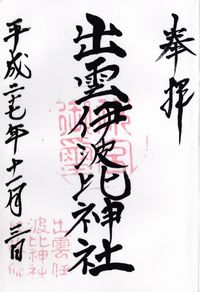 奉拝
出雲伊波比神社
平成二七年十一月三日
出雲伊
波比神社